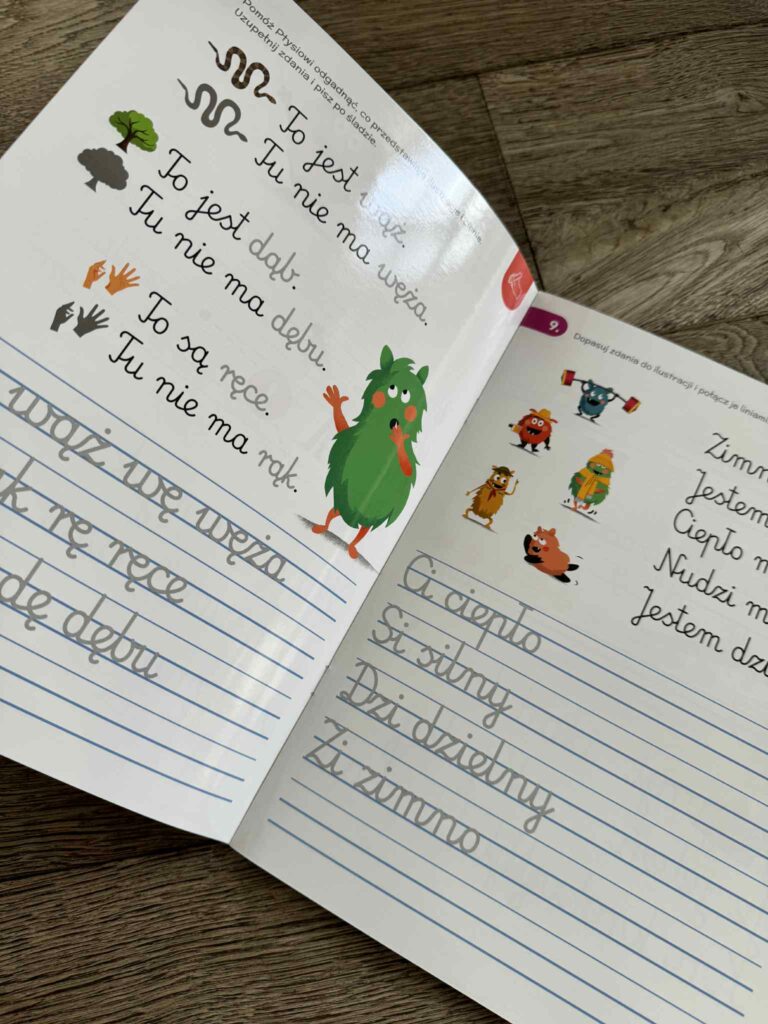 Pomóż Ptysiowi odgadnąć, co przedstawiają ilustracje i cienie.
Uzupełnij zdania i pisz po śladzie.
To jest wąż.
Tu nie ma węża.
To jest dąb.
Tu nie ma dębu.
To są ręce.
Tu nie ma rąk.
wąż wę węża
rę ręce
dę dębu
9.
Dopasuj zdania do ilustracji i połącz je liniami
Jestem
Ciepło
Nudzi
Jestem
Ci ciepło
Si silny
Dzi dzielny
Zi zimno